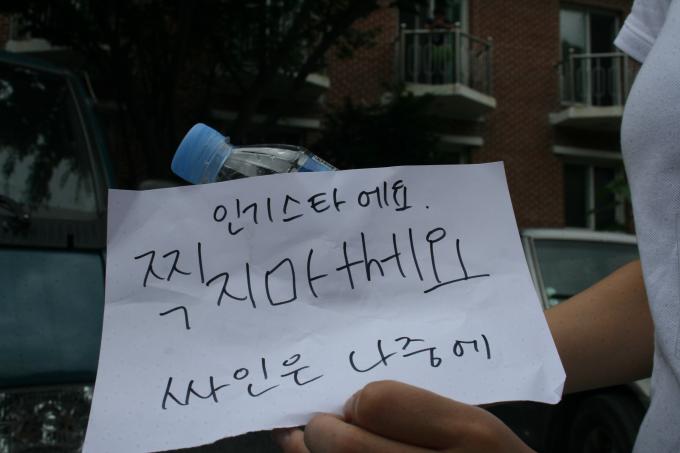 인기스타에요.
찍지마세요
싸인은 나중에